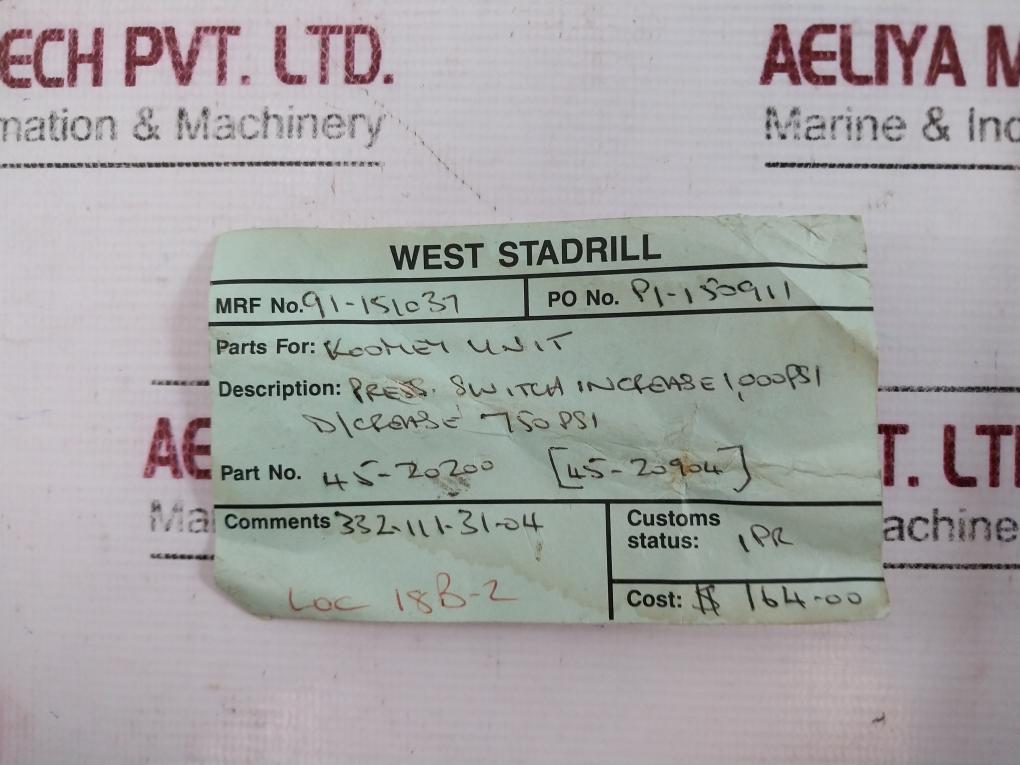 ECH PVT. LTD.
AELIYA M
mation & Machinery
Marine & Ind
WEST STADRILL
MRF No. 91-151037
PO No. P1-150911
Parts For: KOOMEY UNIT
Description: PRESS. SWITCH INCREASE 1,000PSI
D/CREASE 750PSI
Part No. 45-20200 [45-20904]
Comments 332-111-31-04
Customs
status: IPR
LOC 18B-2
Cost: $ 164-00
AE
T. LT
Ma
achine